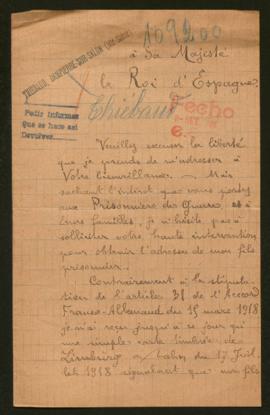 109200
à Sa Majesté
le Roi d'Espagne.
THIEBAUD, DAMPIERRE-SUR-SALON
Thiébaut
Pedir informes
Que se hace asi
Devolver.
Fecho
Veuillez excuser la liberté
que je prends de m'adresser à
Votre bienveillance. Mais
sachant l'intérêt que vous portez
aux Prisonniers de Guerre et à
leurs familles, je n'hésite pas à
solliciter votre haute intervention
pour obtenir l'adresse de mon fils
prisonnier.
Contrairement à la stipula-
tion de l'article 31 de l'Accord
Franco-Allemand du 15 mars 1918
je n'ai reçu jusqu'à ce jour qui
une simple carte timbrée de
Limburg a/ Lahn du 17 Juil
let 1918 signalant que mon fils